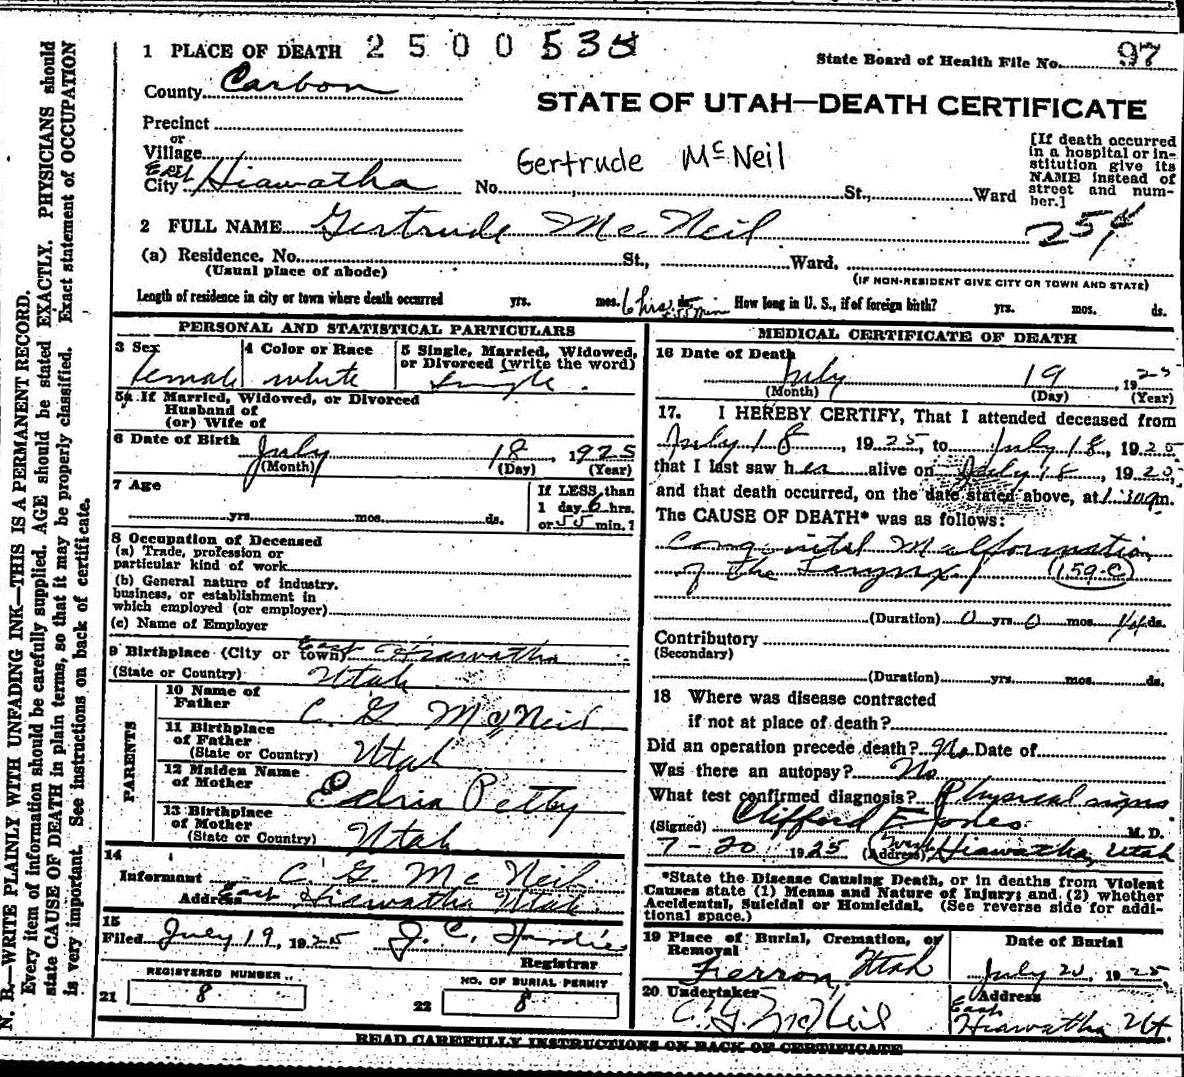 1 PLACE OF DEATH 2500538
State Board of Health File No. 97
County Carbon
STATE OF UTAH—DEATH CERTIFICATE
Precinct
or
Village
East
City Hiawatha No. St., Ward
Gertrude McNeil
[If death occurred in a hospital or institution give its NAME instead of street and number.]
2 FULL NAME Gertrude McNeil
25¢
(a) Residence. No. St., Ward.
(Usual place of abode) (IF NON-RESIDENT GIVE CITY OR TOWN AND STATE)
Length of residence in city or town where death occurred yrs. mos. 6 hrs. 55 min ds. How long in U. S., if of foreign birth? yrs. mos. ds.
PERSONAL AND STATISTICAL PARTICULARS
3 Sex 4 Color or Race 5 Single, Married, Widowed, or Divorced (write the word)
Female white Single
5a If Married, Widowed, or Divorced
Husband of
(or) Wife of
6 Date of Birth July 18, 1925
(Month) (Day) (Year)
7 Age yrs. mos. ds.
If LESS than
1 day 6 hrs.
or 55 min.?
8 Occupation of Deceased
(a) Trade, profession or
particular kind of work
(b) General nature of industry,
business, or establishment in
which employed (or employer)
(c) Name of Employer
9 Birthplace (City or town) East Hiawatha
(State or Country) Utah
PARENTS
10 Name of
Father C. G. McNeil
11 Birthplace
of Father
(State or Country) Utah
12 Maiden Name
of Mother Petty
13 Birthplace
of Mother
(State or Country) Utah
14
Informant C. G. McNeil
Address East Hiawatha Utah
15
Filed July 19, 1925 J. C.
Registrar
REGISTERED NUMBER
21 8
NO. OF BURIAL PERMIT
22 8
MEDICAL CERTIFICATE OF DEATH
16 Date of Death
July 19, 1925
(Month) (Day) (Year)
17. I HEREBY CERTIFY, That I attended deceased from
July 18, 1925, to July 18, 1925
that I last saw her alive on July 18, 1925,
and that death occurred, on the date stated above, at m.
The CAUSE OF DEATH* was as follows:
Congenital Malformation
of the Larynx 159-C
(Duration) 0 yrs. 0 mos. ds.
Contributory
(Secondary)
(Duration) yrs. mos. ds.
18 Where was disease contracted
if not at place of death?
Did an operation precede death? No Date of
Was there an autopsy? No
What test confirmed diagnosis? Physical signs
(Signed) Clifford E. Jones M. D.
7-20 1925 (Address) West Hiawatha, Utah
*State the Disease Causing Death, or in deaths from Violent
Causes state (1) Means and Nature of Injury; and (2) whether
Accidental, Suicidal or Homicidal. (See reverse side for addi-
tional space.)
19 Place of Burial, Cremation, or Date of Burial
Removal
Ferron, Utah July 20, 1925
20 Undertaker Address
C. G. McNeil East
Hiawatha Ut
READ CAREFULLY INSTRUCTIONS ON BACK OF CERTIFICATE
N. B.—WRITE PLAINLY WITH UNFADING INK—THIS IS A PERMANENT RECORD.
Every item of information should be carefully supplied. AGE should be stated EXACTLY. PHYSICIANS should
state CAUSE OF DEATH in plain terms, so that it may be properly classified. Exact statement of OCCUPATION
is very important. See instructions on back of certificate.